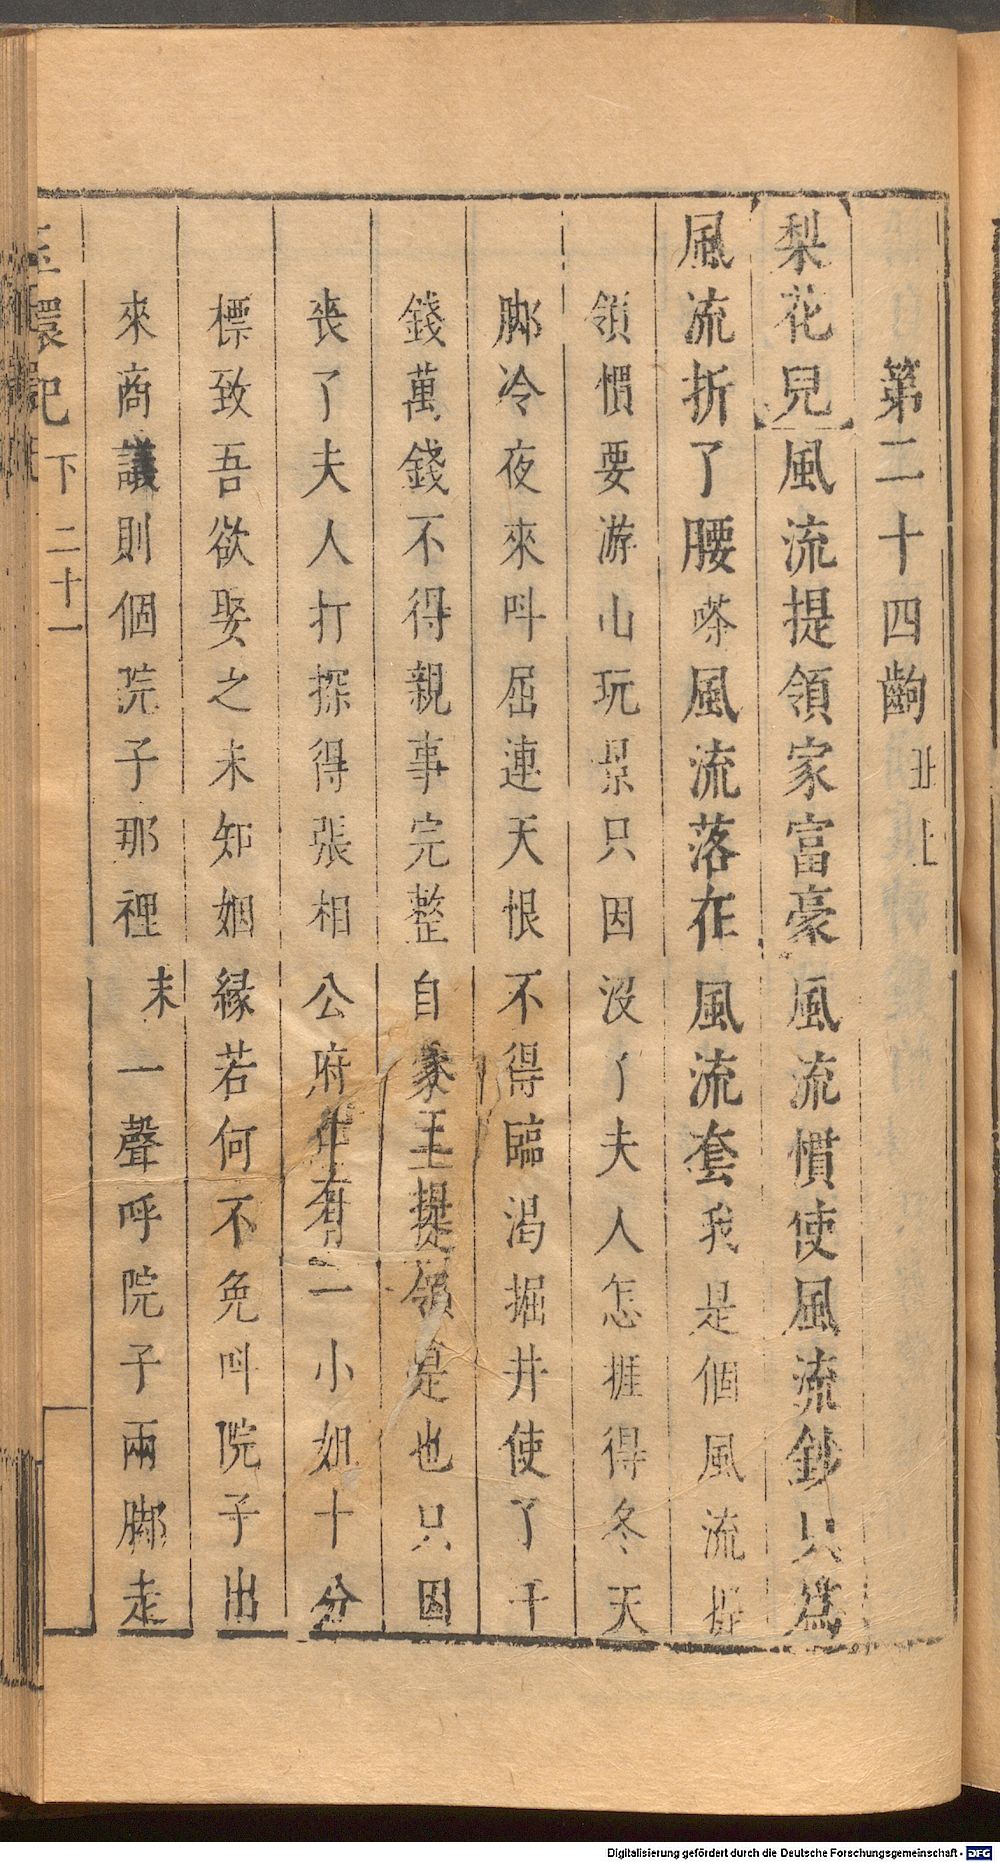 第二十四齣 丑上
梨花兒風流提領家富豪風流慣使風流鈔只爲
風流折了腰嗏風流落在風流套我是個風流提
領慣要游山玩景只因沒了夫人怎捱得冬天
脚冷夜來叫屈連天恨不得臨渴掘井使了千
錢萬錢不得親事完整自家王提領是也只因
喪了夫人打探得張相公府中有一小姐十分
標致吾欲娶之未知姻緣若何不免叫院子出
來商議則個院子那裡末一聲呼院子兩脚走
玉環記 下 二十一
Digitalisierung gefördert durch die Deutsche Forschungsgemeinschaft - DFG